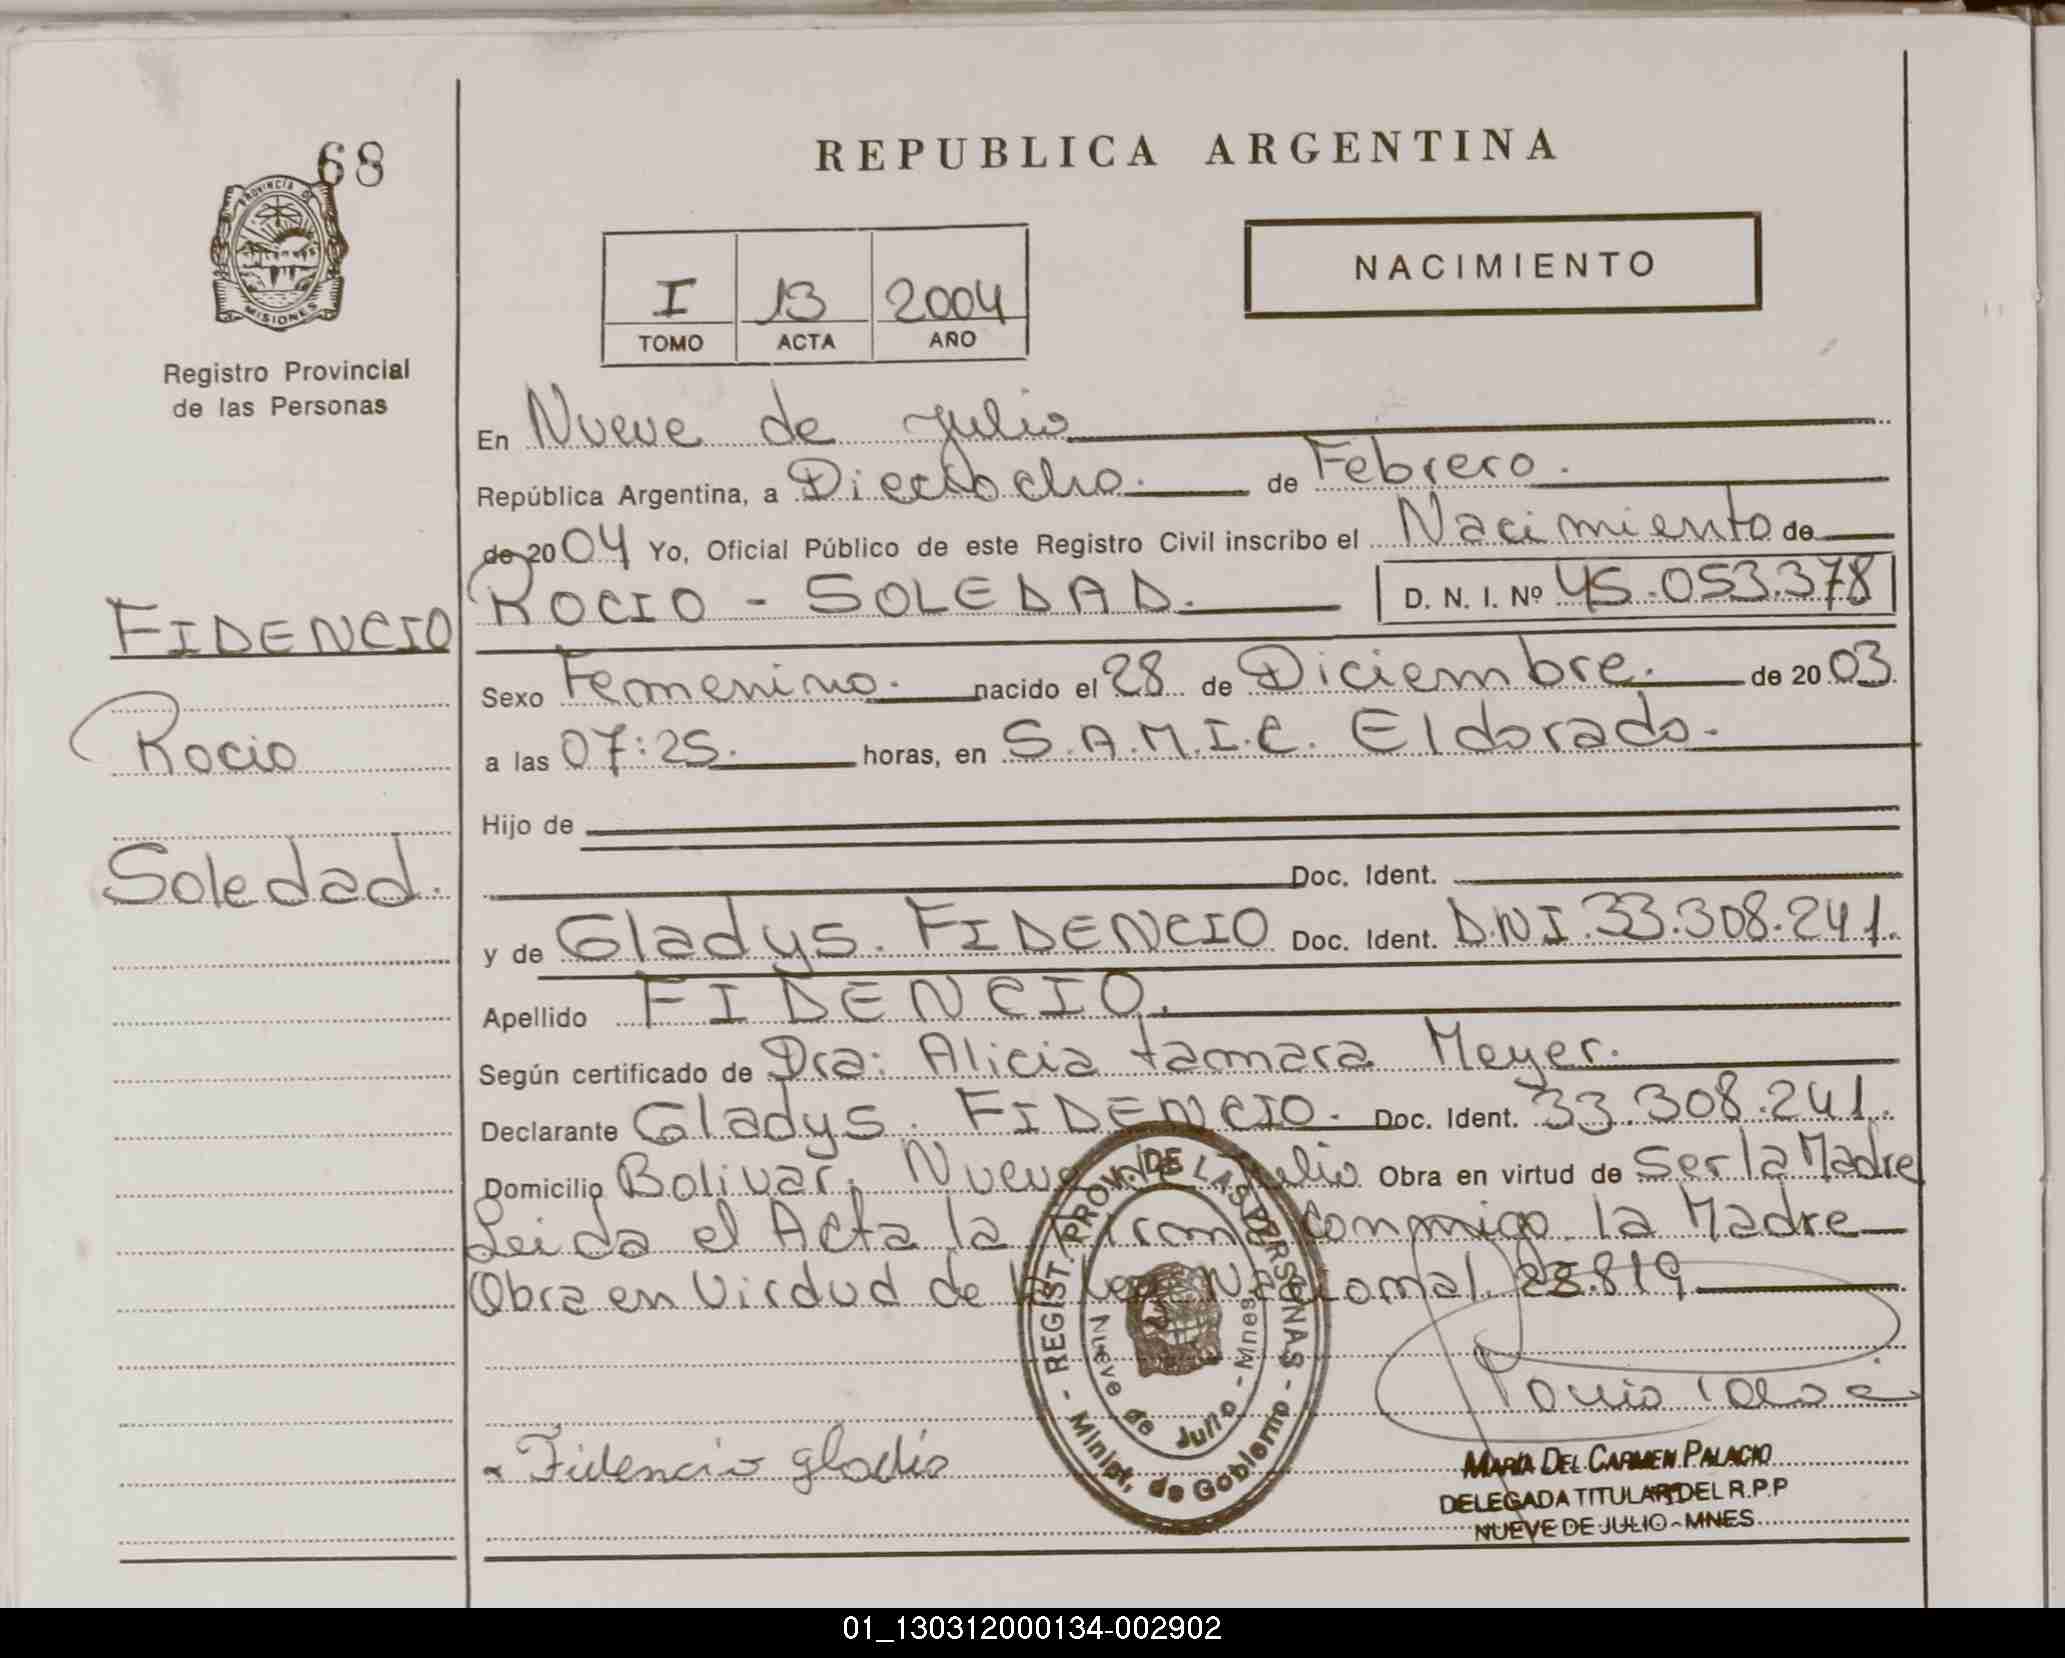 68
PROVINCIA DE
MISIONES
Registro Provincial
de las Personas
FIDENCIO
Rocio
Soledad.
REPUBLICA ARGENTINA
I 13 2004
TOMO ACTA AÑO
NACIMIENTO
En Nueve de Julio
República Argentina, a Dieciocho. de Febrero.
de 2004 Yo, Oficial Público de este Registro Civil inscribo el Nacimiento de
ROCIO - SOLEDAD. D. N. I. Nº 45.053.378
Sexo Femenino. nacido el 28 de Diciembre. de 2003
a las 07:25. horas, en S.A.M.I.C. Eldorado.
Hijo de
Doc. Ident.
y de Gladys. FIDENCIO Doc. Ident. D.N.I. 33.308.241.
Apellido FIDENCIO.
Según certificado de Dra: Alicia tamara Meyer.
Declarante Gladys. FIDENCIO. Doc. Ident. 33.308.241.
Domicilio Bolivar. Nueve de Julio Obra en virtud de Ser la Madre
Leida el Acta la Firma conmigo la Madre
Obra en Virdud de la Ley Nacional 23.819
- REGIST. PROV. DE LAS PERSONAS -
Minist. de Gobierno
Nueve de Julio - Mnes
Fidencio gladis
MARIA DEL CARMEN PALACIO
DELEGADA TITULAR DEL R.P.P
NUEVE DE JULIO - MNES
01_130312000134-002902